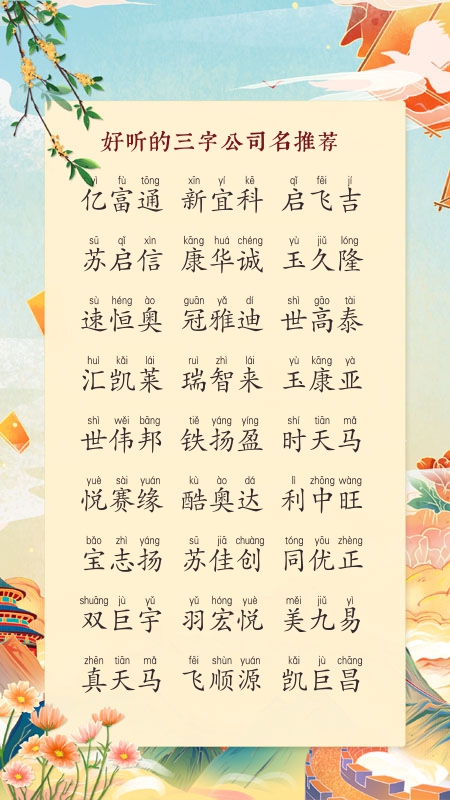 好听的三字公司名推荐
yì fù tōng xīn yí kē qǐ fēi jí
亿富通 新宜科 启飞吉
sū qǐ xìn kāng huá chéng yù jiǔ lóng
苏启信 康华诚 玉久隆
sù héng ào guān yǎ dí shì gāo tài
速恒奥 冠雅迪 世高泰
huì kǎi lái ruì zhì lái yù kāng yà
汇凯莱 瑞智来 玉康亚
shì wěi bāng tiě yáng yíng shí tiān mǎ
世伟邦 铁扬盈 时天马
yuè sài yuán kù ào dá lì zhōng wàng
悦赛缘 酷奥达 利中旺
bǎo zhì yáng sū jiā chuàng tóng yōu zhèng
宝志扬 苏佳创 同优正
shuāng jù yǔ yǔ hóng yuè měi jiǔ yì
双巨宇 羽宏悦 美九易
zhēn tiān mǎ fēi shùn yuán kǎi jù chāng
真天马 飞顺源 凯巨昌